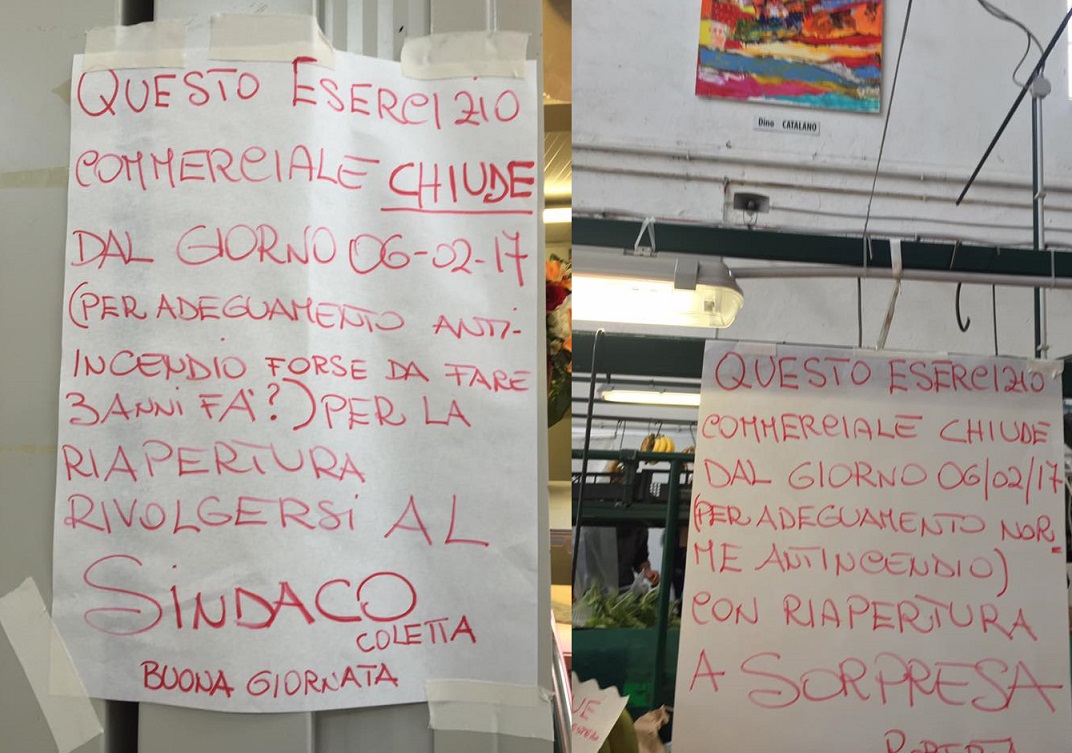 QUESTO ESERCIZIO
COMMERCIALE CHIUDE
DAL GIORNO 06-02-17
(PER ADEGUAMENTO ANTI-
INCENDIO FORSE DA FARE
3 ANNI FA'?) PER LA
RIAPERTURA
RIVOLGERSI AL
SINDACO
COLETTA
BUONA GIORNATA
Dino CATALANO
QUESTO ESERCIZIO
COMMERCIALE CHIUDE
DAL GIORNO 06/02/17
(PER ADEGUAMENTO NOR=
ME ANTINCENDIO)
CON RIAPERTURA
A SORPRESA